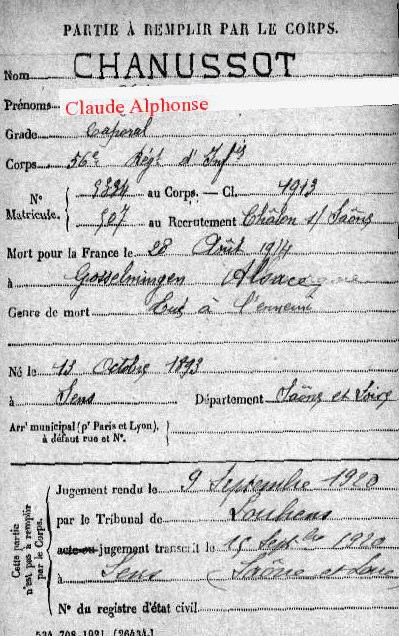 PARTIE À REMPLIR PAR LE CORPS.
Nom CHANUSSOT
Prénoms Claude Alphonse
Grade Caporal
Corps 56e Régt d'Infie
N° 3324 au Corps. — Cl. 1913
Matricule. 507 au Recrutement Châlon s/ Saône
Mort pour la France le 28 Août 1914
à Gosselmingen Alsace
Genre de mort Tué à l'ennemi
Né le 13 Octobre 1893
à Sens Département Saône et Loire
Arrt municipal (pr Paris et Lyon),
à défaut rue et N°.
Cette partie
n'est pas à remplir
par le Corps.
Jugement rendu le 9 Septembre 1920
par le Tribunal de Louhans
acte ou jugement transcrit le 15 Septbre 1920
à Sens (Saône et Loire
N° du registre d'état civil
534-708-1921. [26434.]